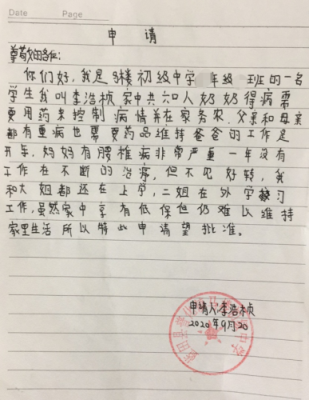 Date Page
申请
你们好，我是 楼初级中学 年级 班的一名
学生我叫李浩桢家中共六口人奶奶得病需
要用药来控制病情并在家务农、父亲和母亲
都有重病也需要药品维持爸爸的工作是
开车，妈妈有腰椎病非常严重一年没有
工作在不断的治疗，但不见好转，我
和大姐都还在上学，二姐在外实习
工作，虽然家中享有低保但仍难以维持
家里生活所以特此申请望批准。
申请人：李浩桢
2020年9月20